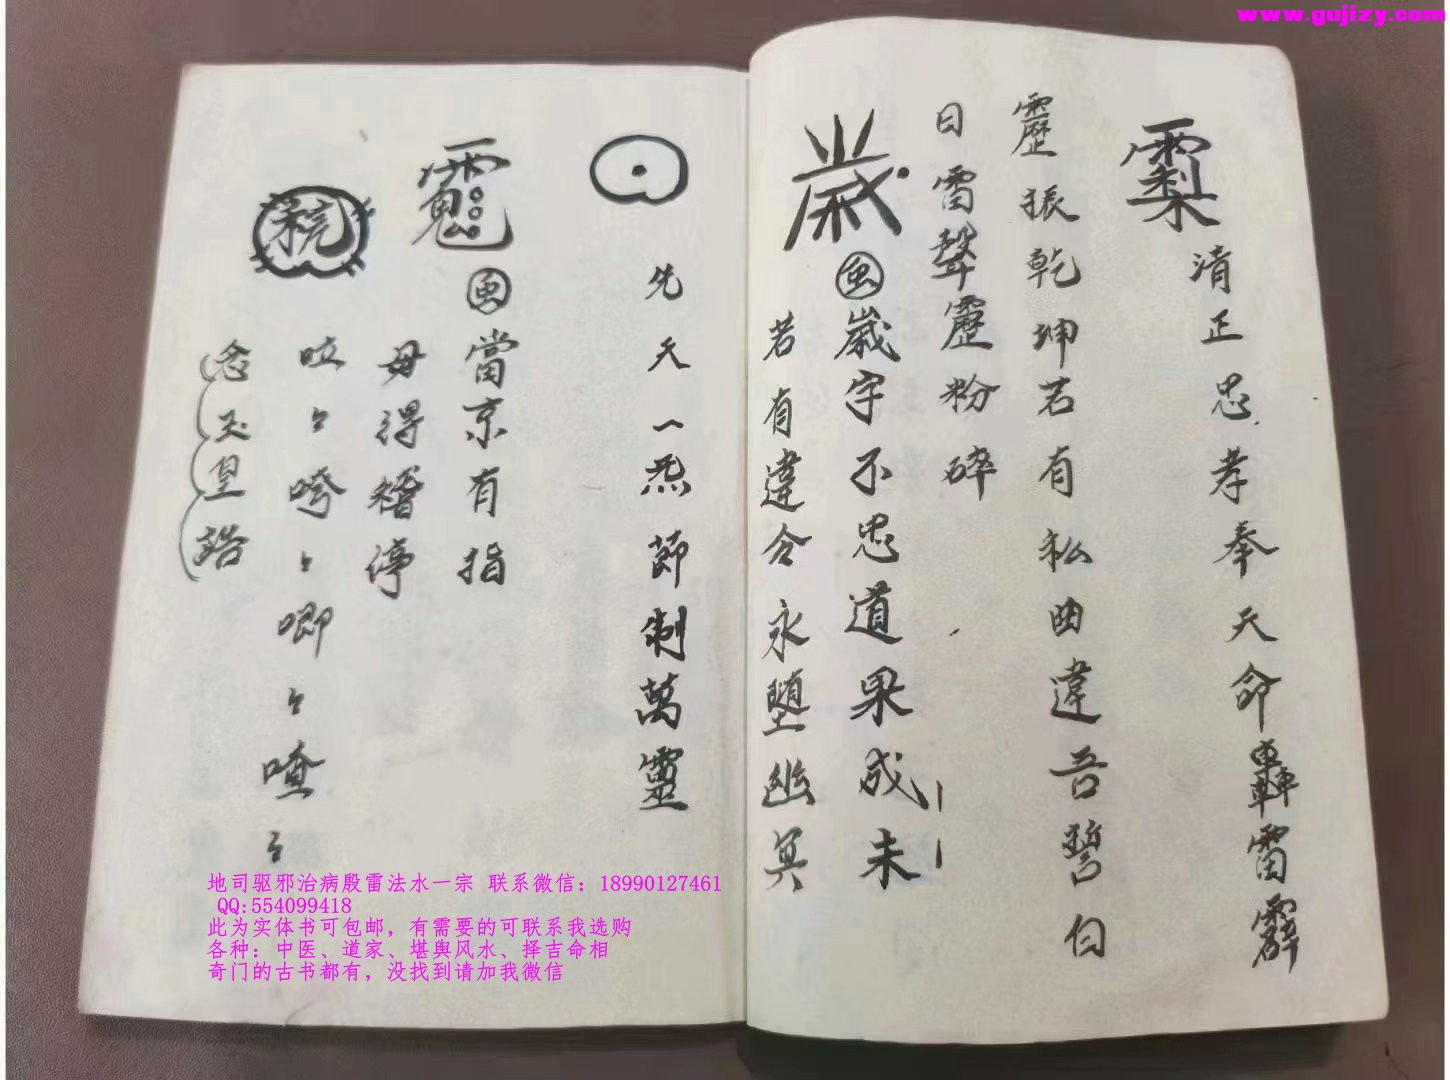 www.gujizy.com
清正忠孝奉天命轟雷霹
靂振乾坤若有私曲違吾誓白
日雷聲靂粉碎
歲字不忠道果成未
若有違令永墮幽冥
先天一炁節制萬靈
當京有指
毋得稽停
吰〻咵〻唧〻喳〻
念玉皇誥
地司驱邪治病殷雷法水一宗 联系微信：18990127461
QQ:554099418
此为实体书可包邮，有需要的可联系我选购
各种：中医、道家、堪舆风水、择吉命相
奇门的古书都有，没找到请加我微信